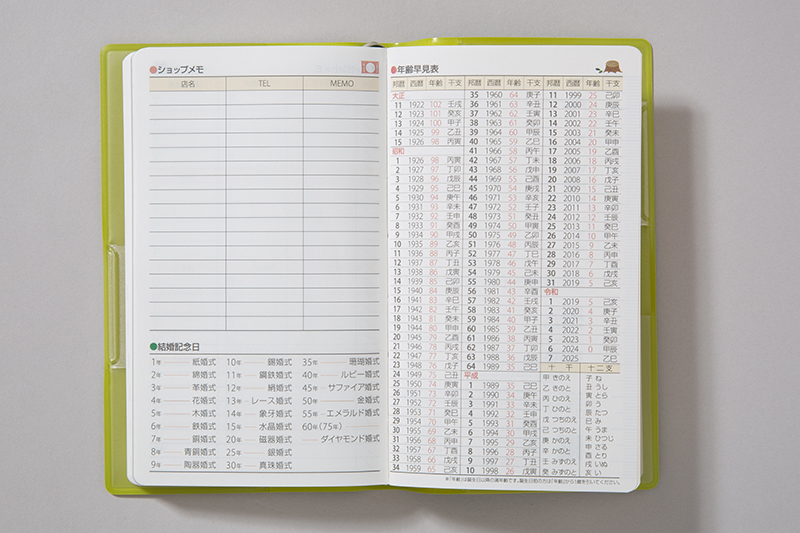 ショップメモ
店名 TEL MEMO
結婚記念日
1年 紙婚式 10年 錫婚式 35年 珊瑚婚式
2年 綿婚式 11年 鋼鉄婚式 40年 ルビー婚式
3年 革婚式 12年 絹婚式 45年 サファイア婚式
4年 花婚式 13年 レース婚式 50年 金婚式
5年 木婚式 14年 象牙婚式 55年 エメラルド婚式
6年 鉄婚式 15年 水晶婚式 60年(75年)
7年 銅婚式 20年 磁器婚式 ダイヤモンド婚式
8年 青銅婚式 25年 銀婚式
9年 陶器婚式 30年 真珠婚式
年齢早見表
邦暦 西暦 年齢 干支
大正
11 1922 102 壬戌
12 1923 101 癸亥
13 1924 100 甲子
14 1925 99 乙丑
15 1926 98 丙寅
昭和
1 1926 98 丙寅
2 1927 97 丁卯
3 1928 96 戊辰
4 1929 95 己巳
5 1930 94 庚午
6 1931 93 辛未
7 1932 92 壬申
8 1933 91 癸酉
9 1934 90 甲戌
10 1935 89 乙亥
11 1936 88 丙子
12 1937 87 丁丑
13 1938 86 戊寅
14 1939 85 己卯
15 1940 84 庚辰
16 1941 83 辛巳
17 1942 82 壬午
18 1943 81 癸未
19 1944 80 甲申
20 1945 79 乙酉
21 1946 78 丙戌
22 1947 77 丁亥
23 1948 76 戊子
24 1949 75 己丑
25 1950 74 庚寅
26 1951 73 辛卯
27 1952 72 壬辰
28 1953 71 癸巳
29 1954 70 甲午
30 1955 69 乙未
31 1956 68 丙申
32 1957 67 丁酉
33 1958 66 戊戌
34 1959 65 己亥
邦暦 西暦 年齢 干支
35 1960 64 庚子
36 1961 63 辛丑
37 1962 62 壬寅
38 1963 61 癸卯
39 1964 60 甲辰
40 1965 59 乙巳
41 1966 58 丙午
42 1967 57 丁未
43 1968 56 戊申
44 1969 55 己酉
45 1970 54 庚戌
46 1971 53 辛亥
47 1972 52 壬子
48 1973 51 癸丑
49 1974 50 甲寅
50 1975 49 乙卯
51 1976 48 丙辰
52 1977 47 丁巳
53 1978 46 戊午
54 1979 45 己未
55 1980 44 庚申
56 1981 43 辛酉
57 1982 42 壬戌
58 1983 41 癸亥
59 1984 40 甲子
60 1985 39 乙丑
61 1986 38 丙寅
62 1987 37 丁卯
63 1988 36 戊辰
64 1989 35 己巳
平成
1 1989 35 己巳
2 1990 34 庚午
3 1991 33 辛未
4 1992 32 壬申
5 1993 31 癸酉
6 1994 30 甲戌
7 1995 29 乙亥
8 1996 28 丙子
9 1997 27 丁丑
10 1998 26 戊寅
邦暦 西暦 年齢 干支
11 1999 25 己卯
12 2000 24 庚辰
13 2001 23 辛巳
14 2002 22 壬午
15 2003 21 癸未
16 2004 20 甲申
17 2005 19 乙酉
18 2006 18 丙戌
19 2007 17 丁亥
20 2008 16 戊子
21 2009 15 己丑
22 2010 14 庚寅
23 2011 13 辛卯
24 2012 12 壬辰
25 2013 11 癸巳
26 2014 10 甲午
27 2015 9 乙未
28 2016 8 丙申
29 2017 7 丁酉
30 2018 6 戊戌
31 2019 5 己亥
令和
1 2019 5 己亥
2 2020 4 庚子
3 2021 3 辛丑
4 2022 2 壬寅
5 2023 1 癸卯
6 2024 0 甲辰
7 2025 乙巳
十干 十二支
甲 きのえ 子 ね
乙 きのと 丑 うし
丙 ひのえ 寅 とら
丁 ひのと 卯 う
戊 つちのえ 辰 たつ
己 つちのと 巳 み
庚 かのえ 午 うま
辛 かのと 未 ひつじ
壬 みずのえ 申 さる
癸 みずのと 酉 とり
戌 いぬ
亥 い
※「年齢」は誕生日以降の満年齢です。誕生日前の方は「年齢」から1歳を引いてください。